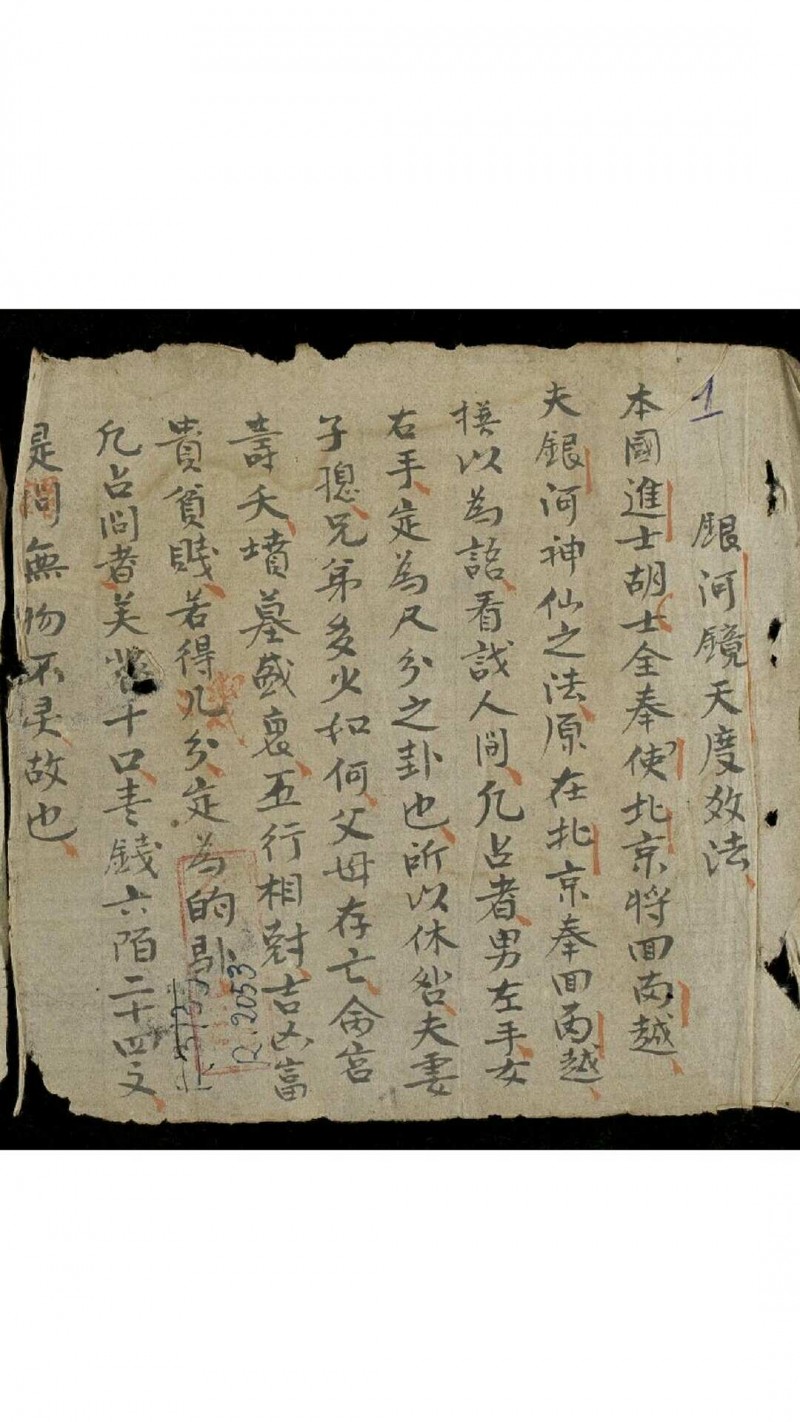 1
銀河鏡天度效法
本國進士胡士全奉使北京將回南越
夫銀河神仙之法原在北京奉回南越
以為語看誠人間凡占者男左手女
右手定為尺分之卦也所以休咎夫妻
子媳兄弟多少如何父母存亡命宮
壽夭墳墓盛衰五行相尅吉凶富
貴貧賤若得几分定為的
凡占問者美 十口壹錢六陌二十四文
是問無物不灵故也
R.2053